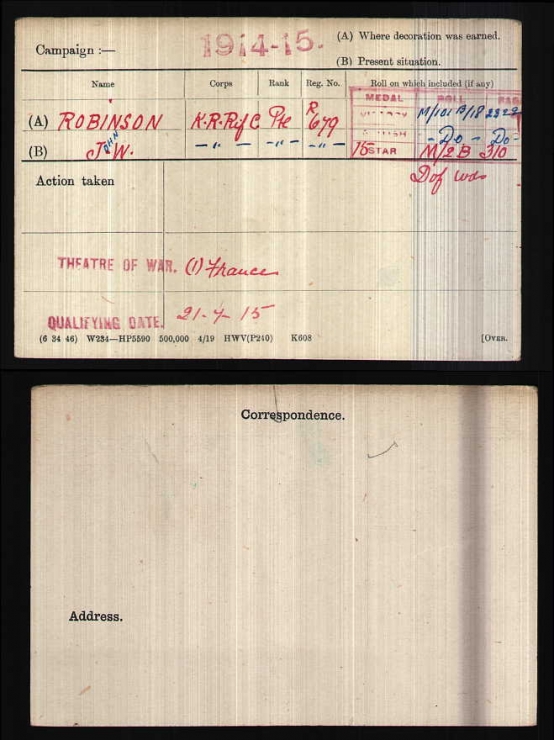 Campaign :— 1914-15. (A) Where decoration was earned.
(B) Present situation.
Name Corps Rank Reg. No. Roll on which included (if any)
MEDAL ROLL PAGE
(A) ROBINSON K.R.Rif C Pte R/679 VICTORY M/101 B/18 2329
BRITISH - Do - Do -
(B) JOHN W. -〃- -〃- -〃- 15 STAR M/2 B 310
Action taken D of W
THEATRE OF WAR. (1) France
QUALIFYING DATE. 21-7-15
(6 34 46) W234—HP5590 500,000 4/19 HWV(P240) K608 [OVER.
Correspondence.
Address.